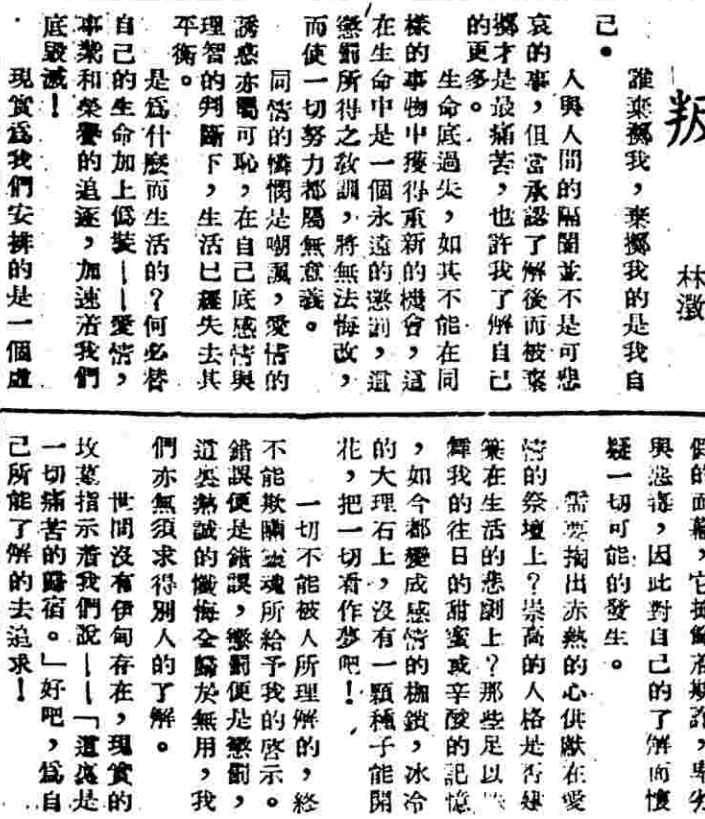 叛
林澂
誰棄擲我,棄擲我的是我自
己。
人與人間的隔閡並不是可悲
哀的事,但當承認了解後而被棄
擲才是最痛苦,也許我了解自己
的更多。
生命底過失,如其不能在同
樣的事物中獲得重新的機會,這
在生命中是一個永遠的懲罰,這
懲罰所得之教訓,將無法悔改,
而使一切努力都屬無意義。
同情的憐憫是嘲諷,愛情的
誘惑亦屬可恥,在自己底感情與
理智的判斷下,生活已經失去其
平衡。
是爲什麼而生活的?何必替
自己的生命加上僞裝——愛情,
事業和榮譽的追逐,加速着我們
底毀滅!
現實爲我們安排的是一個虛
假的面幕,它掩飾着欺詐,卑劣
與惡毒,因此對自己的了解而懷
疑一切可能的發生。
需要掏出赤熱的心供獻在愛
情的祭壇上?崇高的人格是否建
築在生活的悲劇上?那些足以
舞我的往日的甜蜜或辛酸的記憶
,如今都變成感情的枷鎖,冰冷
的大理石上,沒有一顆種子能開
花,把一切看作夢吧!
一切不能被人所理解的,終
不能欺瞞靈魂所給予我的啓示。
錯誤便是錯誤,懲罰便是懲罰,
這與熱誠的懺悔全歸於無用,我
們亦無須求得別人的了解。
世間沒有伊甸存在,現實的
坟墓指示着我們說——「這裏是
一切痛苦的歸宿。」好吧,爲自
己所能了解的去追求!